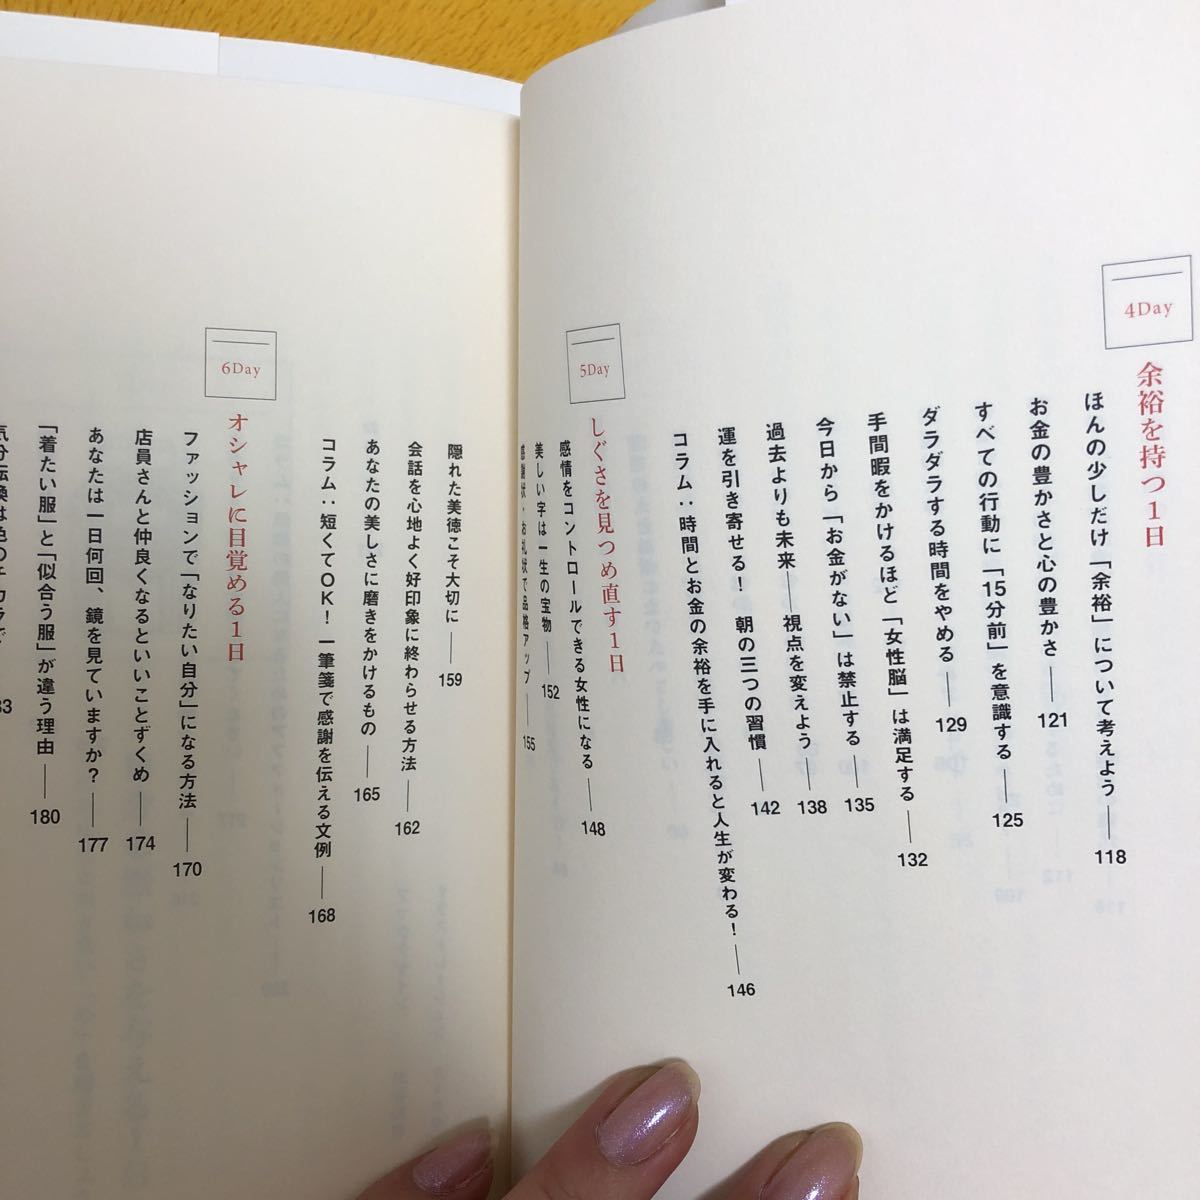 4Day
余裕を持つ1日
ほんの少しだけ「余裕」について考えよう——118
お金の豊かさと心の豊かさ——121
すべての行動に「15分前」を意識する——125
ダラダラする時間をやめる——129
手間暇をかけるほど「女性脳」は満足する——132
今日から「お金がない」は禁止する——135
過去よりも未来——視点を変えよう——138
運を引き寄せる！ 朝の三つの習慣——142
コラム：時間とお金の余裕を手に入れると人生が変わる！——146
5Day
しぐさを見つめ直す1日
感情をコントロールできる女性になる——148
美しい字は一生の宝物——152
感謝状・お礼状で品格アップ——155
隠れた美徳こそ大切に——159
会話を心地よく好印象に終わらせる方法——162
あなたの美しさに磨きをかけるもの——165
コラム：短くてOK！ 一筆箋で感謝を伝える文例——168
6Day
オシャレに目覚める1日
ファッションで「なりたい自分」になる方法——170
店員さんと仲良くなるといいことずくめ——174
あなたは一日何回、鏡を見ていますか？——177
「着たい服」と「似合う服」が違う理由——180
気分転換は色のチカラで